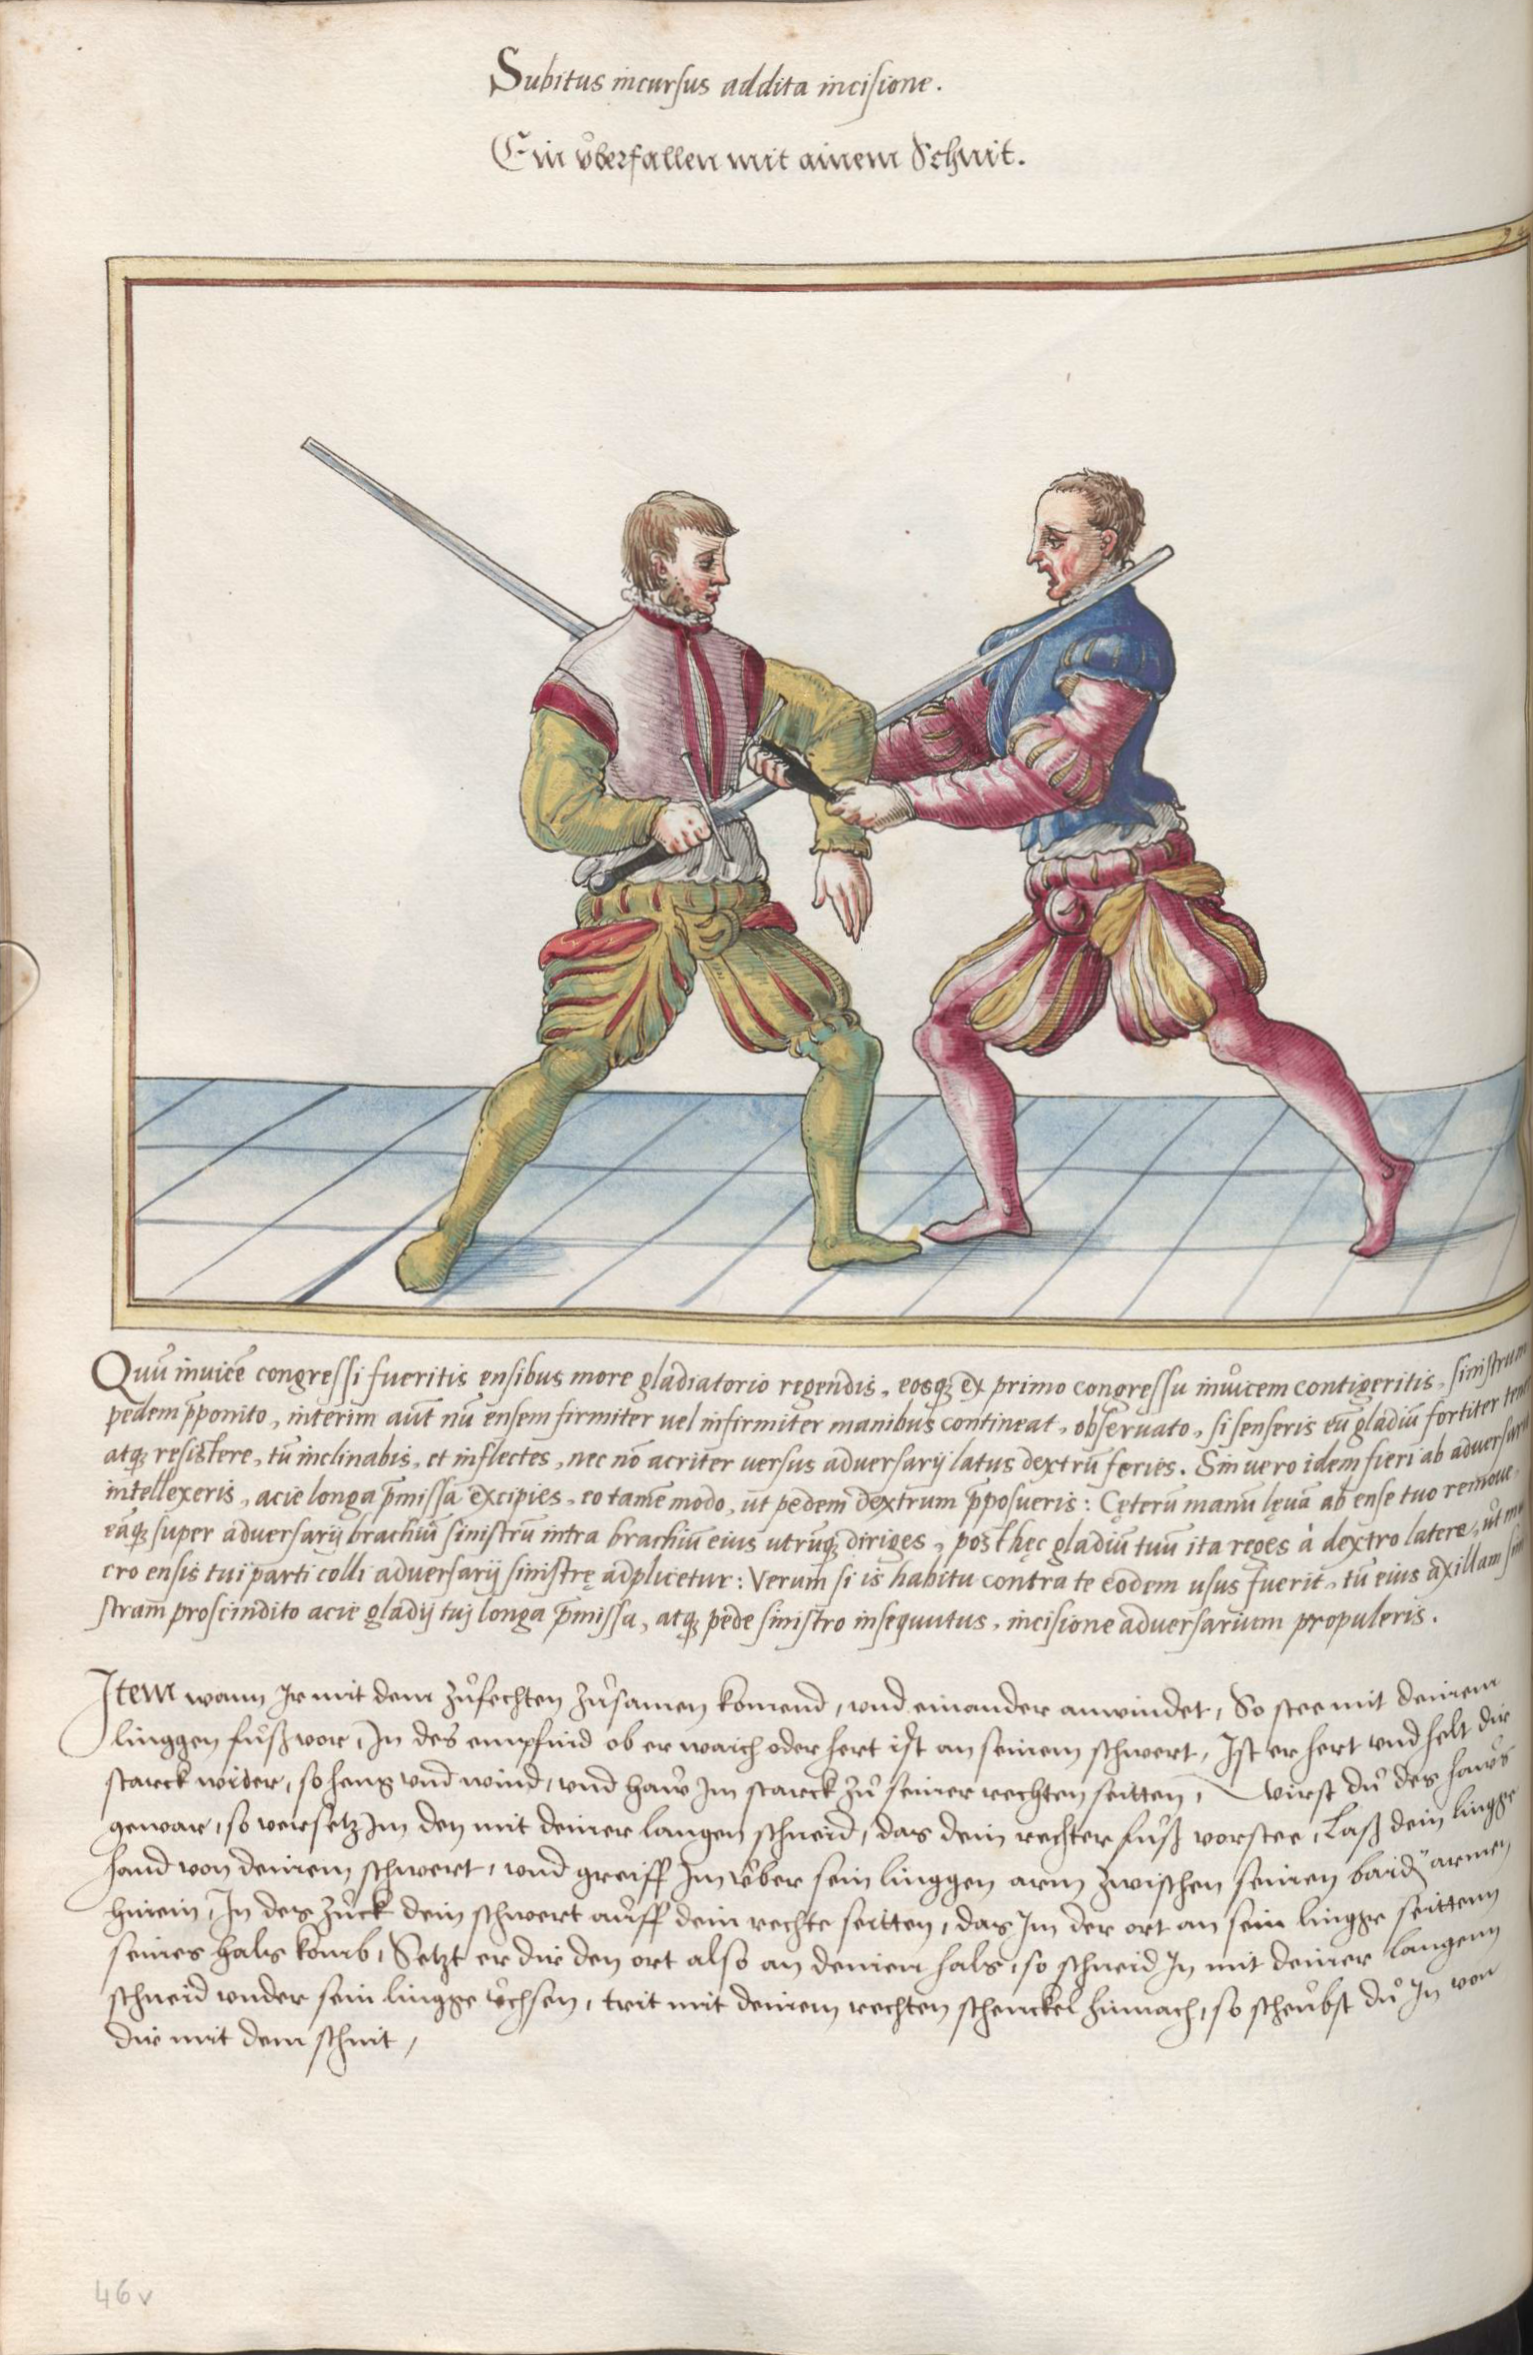 Subitus incursus addita incisione.
Ein v̊berfallen mit ainem Schnit.
Quū inuicē congressi fueritis ensibus more gladiatorio regendis, eosq; ex primo congressu inuicem contigeritis, sinistrum
pedem p̄ponito, interim aūt nū ensem firmiter uel infirmiter manibus contineat, obseruato, si senseris eū gladiū fortiter
atq; resistere, tū inclinabis, et inflectes, nec nō acriter uersus aduersarij latus dextrū feries. Sin uero idem fieri ab
intellexeris, acie longa p̄missa excipies, eo tamē modo, ut pedem dextrum p̄posueris: Cęterū manū lęuā ab ense tuo
eāq; super aduersarij brachiū sinistrū intra brachiū eius utrūq; diriges, post hęc gladiū tuū ita reges à dextro latere, ut
cro ensis tui parti colli aduersarij sinistrę adplicetur: Verum si is habitu contra te eodem usus fuerit, tū eius axillam
stram proscindito acie gladij tuj longa p̄missa, atq; pede sinistro insequutus, incisione aduersarium propuleris.
Item wann Ir mit dem zůfechten zůsamen komend, vnd einander anwindet, So stee mit deinem
linggen fůß vor, In des empfind ob er waich oder hert ist an seinem schwert, Ist er hert vnd helt dir
starck wider, so heng vnd wind, vnd haw Im starck zů seiner rechten seitten, wirst dů des haws
gewar, so versetz Im den mit deiner langen schneid, das dein rechter fůß vorstee, Laß dein lingge
hand von deinem schwert, vnd greiff Im v̊ber sein linggen arm zwischen seinen baid armen
hinein, In des zůck dein schwert aůff dein rechte seitten, das Im der ort an sein lingge seittenn
seines hals komb, Setzt er dir den ort also an deinen hals, so schneid In mit deiner langenn
schneid vnder sein lingge v̊chsen, trit mit deinem rechten schenckel hinnach, so scheůbst dů In von
dir mit dem schnit,
46v